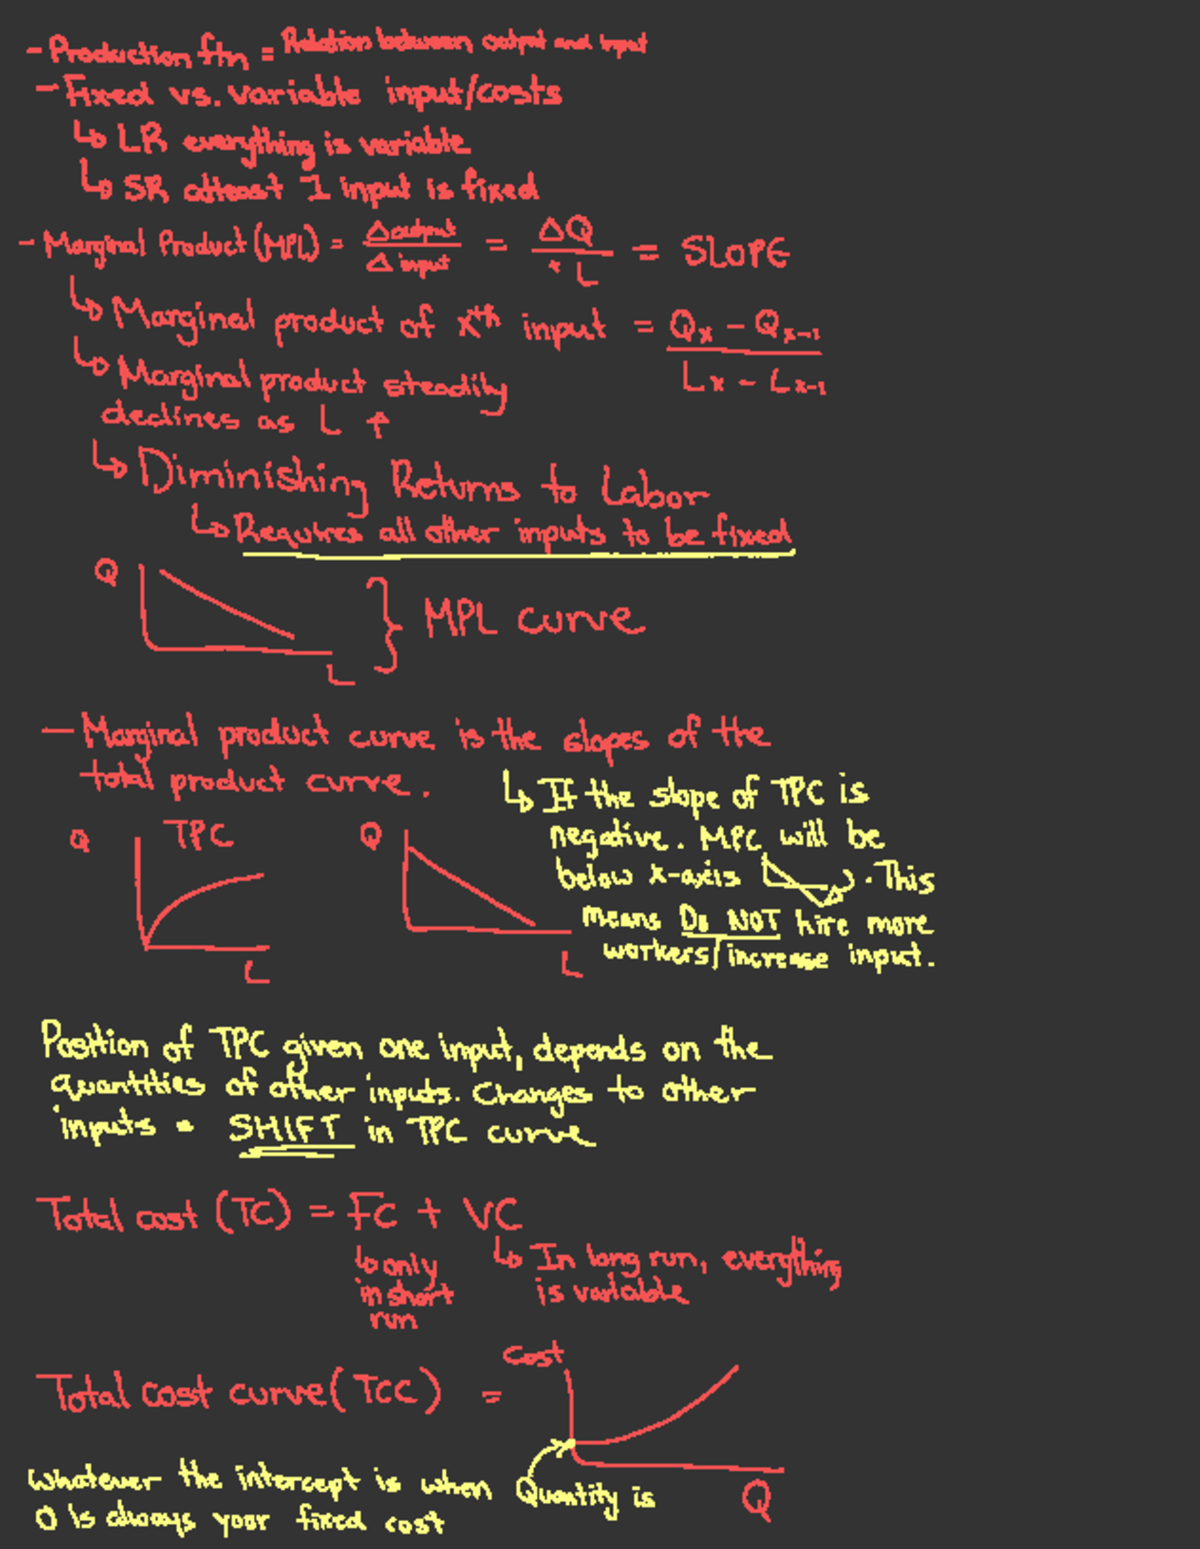 - Production ftn = Relation between output and input
- Fixed vs. variable input/costs
↳ LR everything is variable
↳ SR atleast 1 input is fixed
- Marginal Product (MPL) = Δ output / Δ input = ΔQ / + L = SLOPE
↳ Marginal product of xth input = Qx - Qx-1 / Lx - Lx-1
↳ Marginal product steadily
declines as L ↑
↳ Diminishing Returns to Labor
↳ Requires all other inputs to be fixed
Q
L
} MPL curve
- Marginal product curve is the slopes of the
total product curve.
↳ If the slope of TPC is
negative. MPC will be
below x-axis. This
means DO NOT hire more
workers/increase input.
Q TPC
L
Q
L
Position of TPC given one input, depends on the
quantities of other inputs. Changes to other
inputs = SHIFT in TPC curve
Total cost (TC) = FC + VC
↳ only
in short
run
↳ In long run, everything
is variable
Total cost curve (TCC) =
Cost
Q
Whatever the intercept is when Quantity is
0 is always your fixed cost